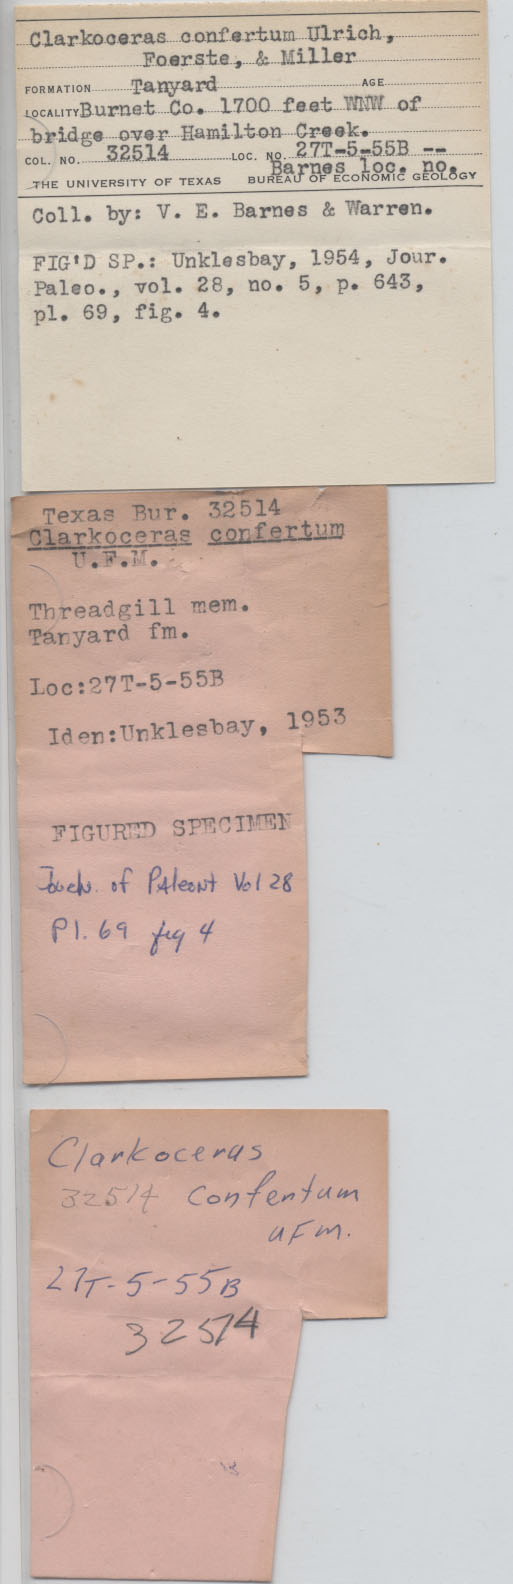 Clarkoceras confertum Ulrich,
Foerste, & Miller
FORMATION Tanyard AGE
LOCALITY Burnet Co. 1700 feet WNW of
bridge over Hamilton Creek.
COL. NO. 32514 LOC. NO. 27T-5-55B --
Barnes loc. no.
THE UNIVERSITY OF TEXAS BUREAU OF ECONOMIC GEOLOGY
Coll. by: V. E. Barnes & Warren.
FIG'D SP.: Unklesbay, 1954, Jour.
Paleo., vol. 28, no. 5, p. 643,
pl. 69, fig. 4.
Texas Bur. 32514
Clarkoceras confertum
U.F.M.
Threadgill mem.
Tanyard fm.
Loc:27T-5-55B
Iden:Unklesbay, 1953
FIGURED SPECIMEN
of Paleont Vol 28
Pl. 69 fig 4
Clarkoceras
32514 Confentum
UFM.
27T-5-55B
32514